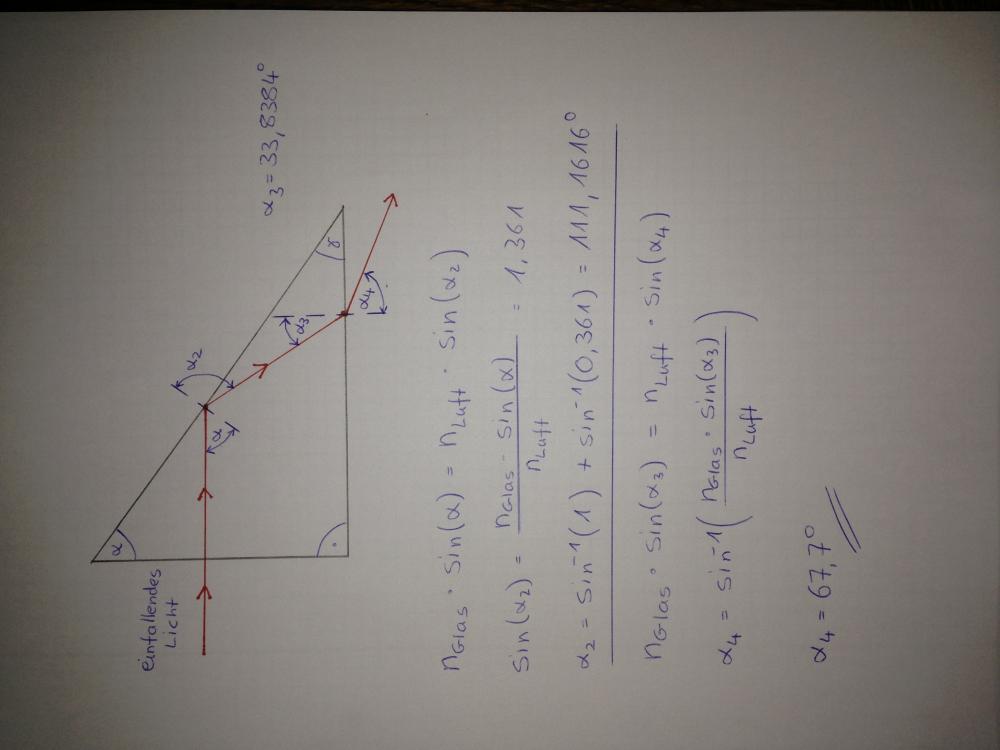 einfallendes
Licht
α
α
α₂
α₃
α₄
γ
α₃ = 33,8384°
n_Glas · sin(α) = n_Luft · sin(α₂)
sin(α₂) = n_Glas · sin(α) / n_Luft = 1,361
α₂ = sin⁻¹(1) + sin⁻¹(0,361) = 111,1616°
n_Glas · sin(α₃) = n_Luft · sin(α₄)
α₄ = sin⁻¹( n_Glas · sin(α₃) / n_Luft )
α₄ = 67,7°